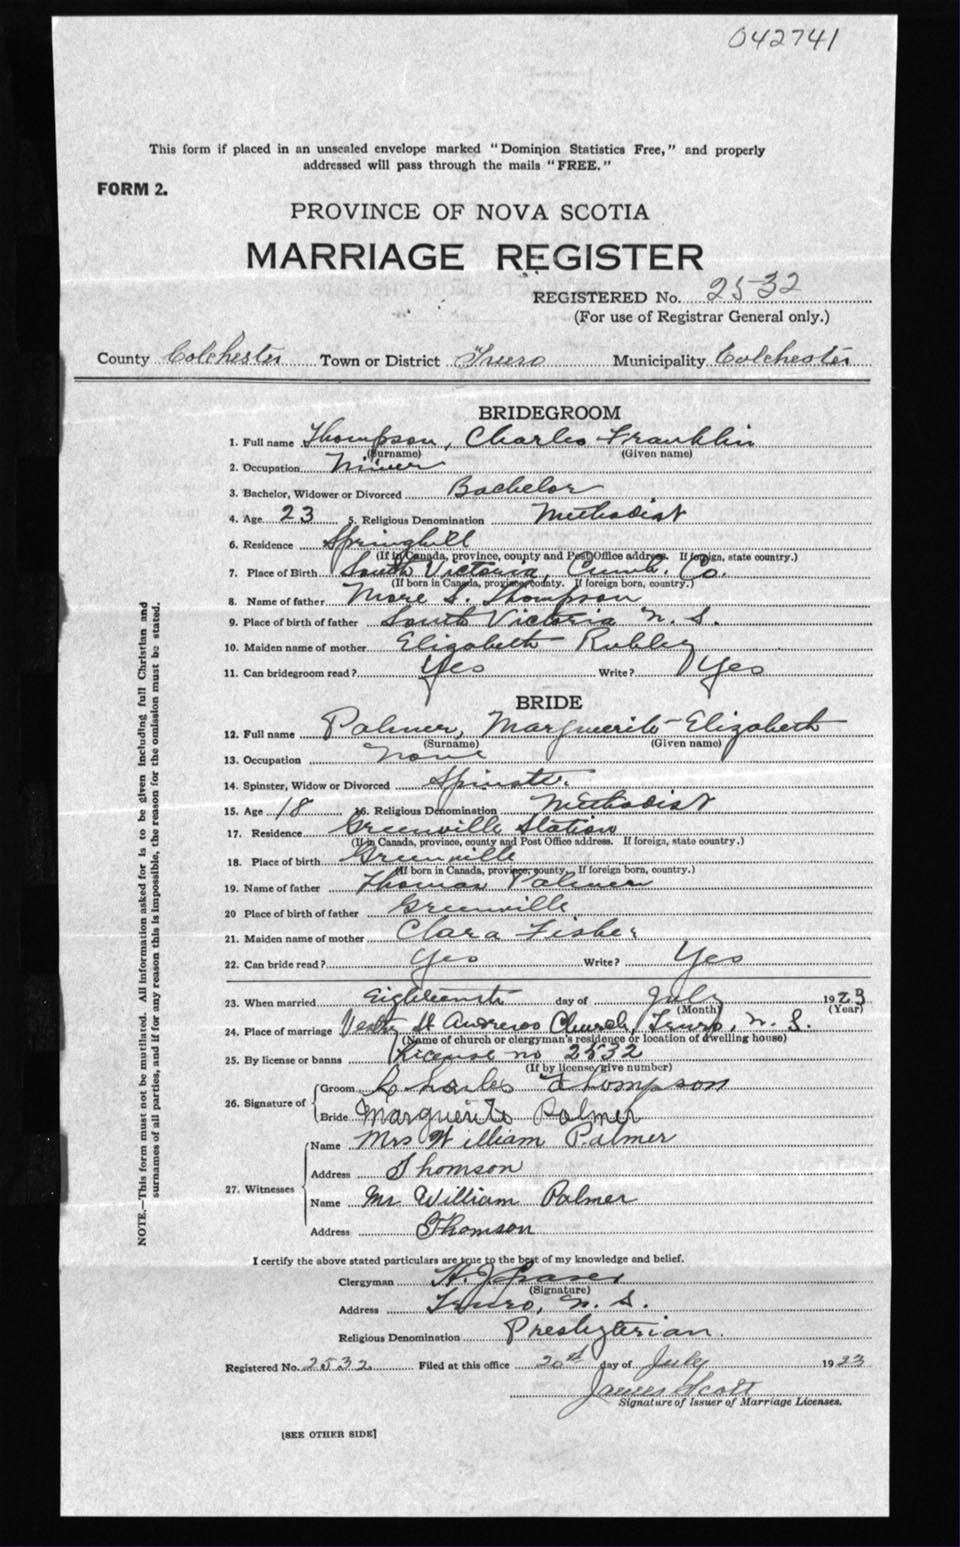 042741
This form if placed in an unsealed envelope marked "Dominion Statistics Free," and properly
addressed will pass through the mails "FREE."
FORM 2.
PROVINCE OF NOVA SCOTIA
MARRIAGE REGISTER
REGISTERED No. 2532
(For use of Registrar General only.)
County Colchester Town or District Truro Municipality Colchester
BRIDEGROOM
1. Full name Thompson, Charles Franklin
(Surname) (Given name)
2. Occupation Miner
3. Bachelor, Widower or Divorced Bachelor
4. Age 23 5. Religious Denomination Methodist
6. Residence Springhill
(If in Canada, province, county and Post Office address. If foreign, state country.)
7. Place of Birth South Victoria, Cumb. Co.
(If born in Canada, province, county. If foreign born, country.)
8. Name of father S. Thompson
9. Place of birth of father South Victoria N. S.
10. Maiden name of mother Elizabeth
11. Can bridegroom read? Yes Write? Yes
BRIDE
12. Full name Palmer, Marguerite Elizabeth
(Surname) (Given name)
13. Occupation None
14. Spinster, Widow or Divorced Spinster
15. Age 18 16. Religious Denomination Methodist
17. Residence Greenville Station
(If in Canada, province, county and Post Office address. If foreign, state country.)
18. Place of birth Greenville
(If born in Canada, province, county. If foreign born, country.)
19. Name of father Thomas Palmer
20 Place of birth of father Greenville
21. Maiden name of mother Clara Fisher
22. Can bride read? Yes Write? Yes
23. When married Eighteenth day of July 1923
(Month) (Year)
24. Place of marriage Vestry St Andrews Church, Truro, N. S.
(Name of church or clergyman's residence or location of dwelling house)
25. By license or banns License no 2532
(If by license, give number)
26. Signature of Groom Charles Thompson
Bride Marguerite Palmer
27. Witnesses Name Mrs William Palmer
Address Thomson
Name Mr William Palmer
Address Thomson
I certify the above stated particulars are true to the best of my knowledge and belief.
Clergyman H. J. Fraser
(Signature)
Address Truro, N. S.
Religious Denomination Presbyterian.
Registered No. 2532 Filed at this office 20th day of July 1923
James Scott
Signature of Issuer of Marriage Licenses.
[SEE OTHER SIDE]
NOTE.—This form must not be mutilated. All information asked for is to be given including full Christian and
surnames of all parties, and if for any reason this is impossible, the reason for the omission must be stated.